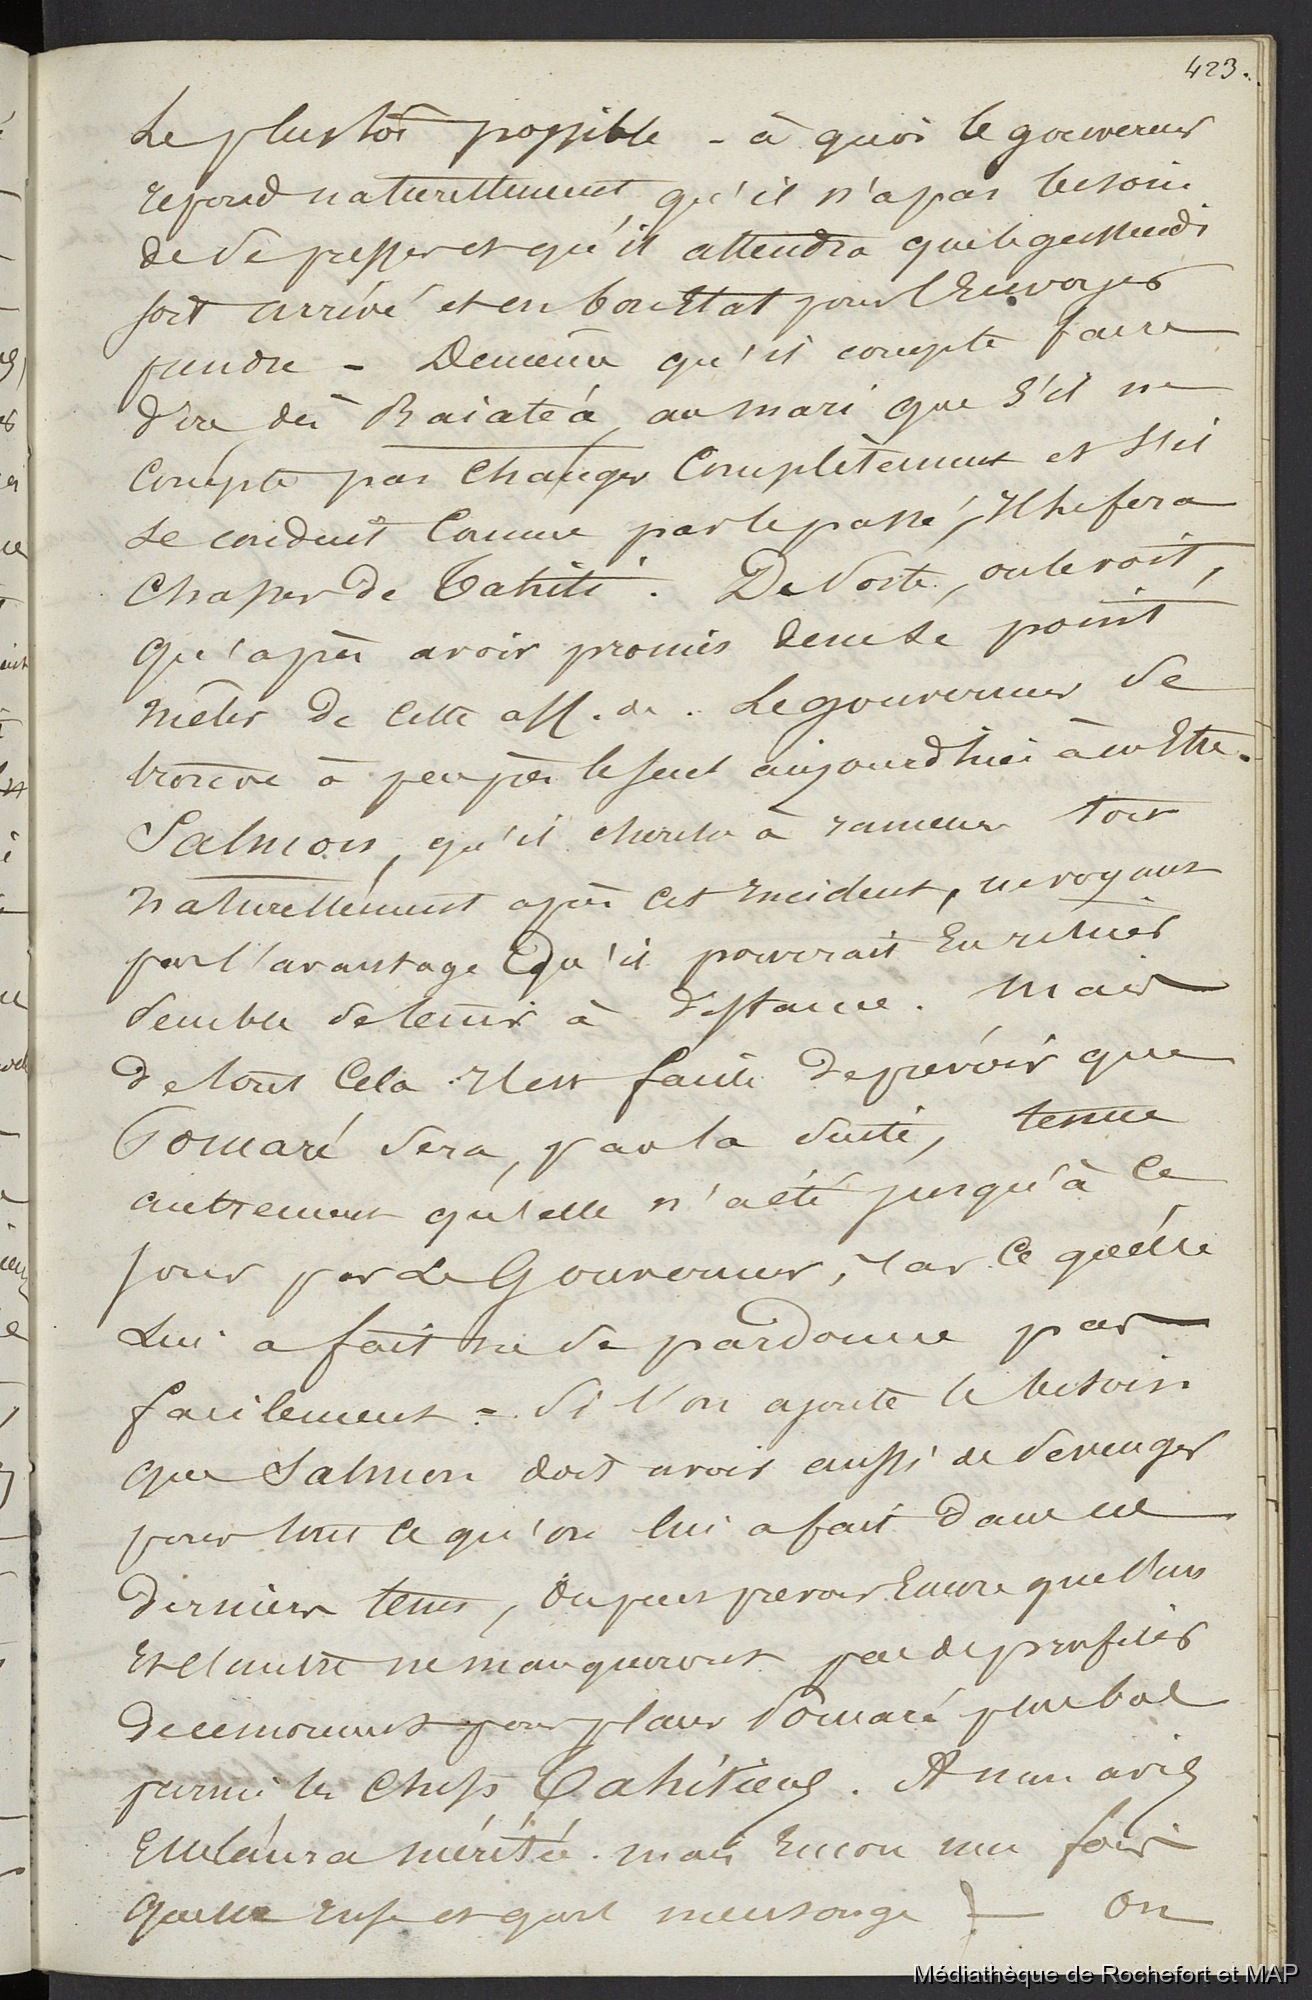 423.
Le plus tôt possible - à quoi le gouverneur
repond naturellement qu'il n'a pas besoin
de se presser et qu'il attendra que le gassendi
soit arrivé et en bon Etat pour l'Envoyer
prendre - Demême qu'il compte faire
dire dès Raiatéa au mari que s'il ne
compte pas changer Complètement et s'il
se conduit Comme par le passé, Il le fera
Chasser de Tahiti. De sorte, on le voit,
qu'après avoir promis de ne se point
mêler de cette aff. de. Le gouverneur se
trouve à peu près le seul aujourd'hui à en Etre.
Salmon, qu'il cherche à ramener tout
naturellement après cet incident, ne voyant
pas l'avantage qu'il pourrait En retirer
semble se tenir à distance. Mais
de tout Cela Il est facile de prévoir que
Pomaré sera, par la suite, tenue
autrement qu'elle n'a été jusqu'à ce
jour par Le Gouverneur, Car Ce qu'elle
Lui a fait ne se pardonne pas
facilement - Si l'on ajoute le besoin
que Salmon doit avoir aussi de se venger
pour tout ce qu'on lui a fait dans ces
derniers tems, On peut prevoir Encore que l'un
Et l'autre ne manqueront pas de profiter
de ce moment pour placer Pomaré plus bas
parmi les Chefs Tahitiens. A mon avis
Elle l'aura mérité. mais Encore une fois
quelle ruse et quel mensonge ! — On
Médiathèque de Rochefort et MAP